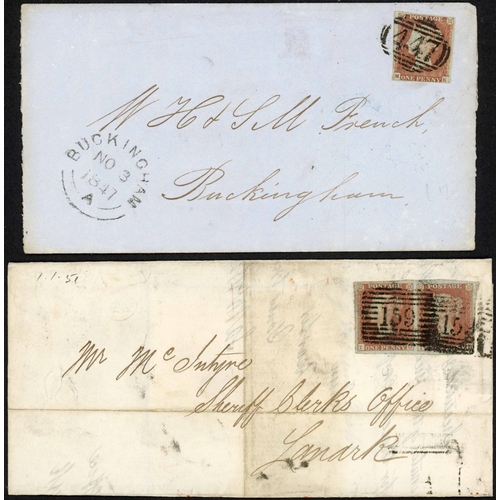 POSTAGE
447
ONE PENNY
W H & S M French,
Buckingham
BUCKINGHAM
NO 3
1847
A
1.1.51
POSTAGE POSTAGE
159 159
ONE PENNY
Mr McIntyre
Sheriff Clerks Office
Lanark